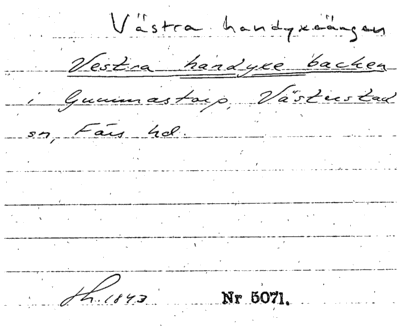 Västra handyxeängen
Vestra handyxe backen
i Gummastorp, Västerstad
sn, Färs hd.
Sk. 1843 Nr 5071.